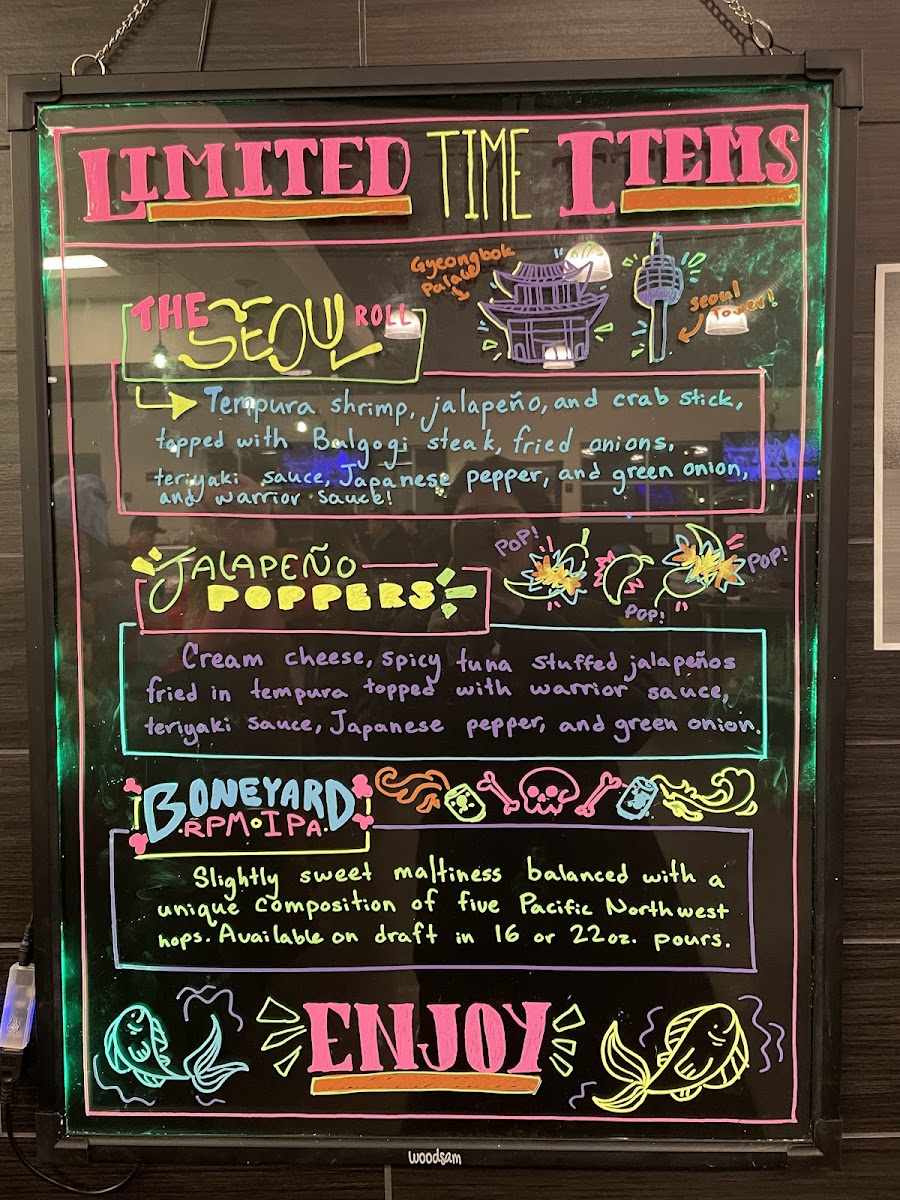 LIMITED TIME ITEMS
Gyeongbok
Palace
Seoul
Tower!
THE SEOUL ROLL
Tempura shrimp, jalapeño, and crab stick,
topped with Bulgogi steak, fried onions,
teriyaki sauce, Japanese pepper, and green onion,
and warrior sauce!
JALAPEÑO
POPPERS
POP!
POP!
POP!
Cream cheese, spicy tuna stuffed jalapeños
fried in tempura topped with warrior sauce,
teriyaki sauce, Japanese pepper, and green onion.
BONEYARD
·RPM·IPA·
Slightly sweet maltiness balanced with a
unique composition of five Pacific Northwest
hops. Available on draft in 16 or 22oz. pours.
ENJOY
woodsam